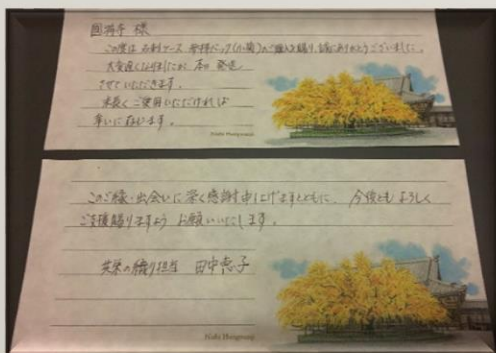 様
この度は 名刺ケース 参拝バック(小菊)のご購入を賜り、誠にありがとうございました。
大変遅くなりましたが、本日 発送
させていただきます。
末長く ご愛用いただければ
幸いに存じます。
Nishi Hongwanji
このご縁・出会いに深く感謝申し上げますとともに、今後とも よろしく
ご支援賜りますよう お願いいたします。
共栄の織り担当 田中恵子
Nishi Hongwanji